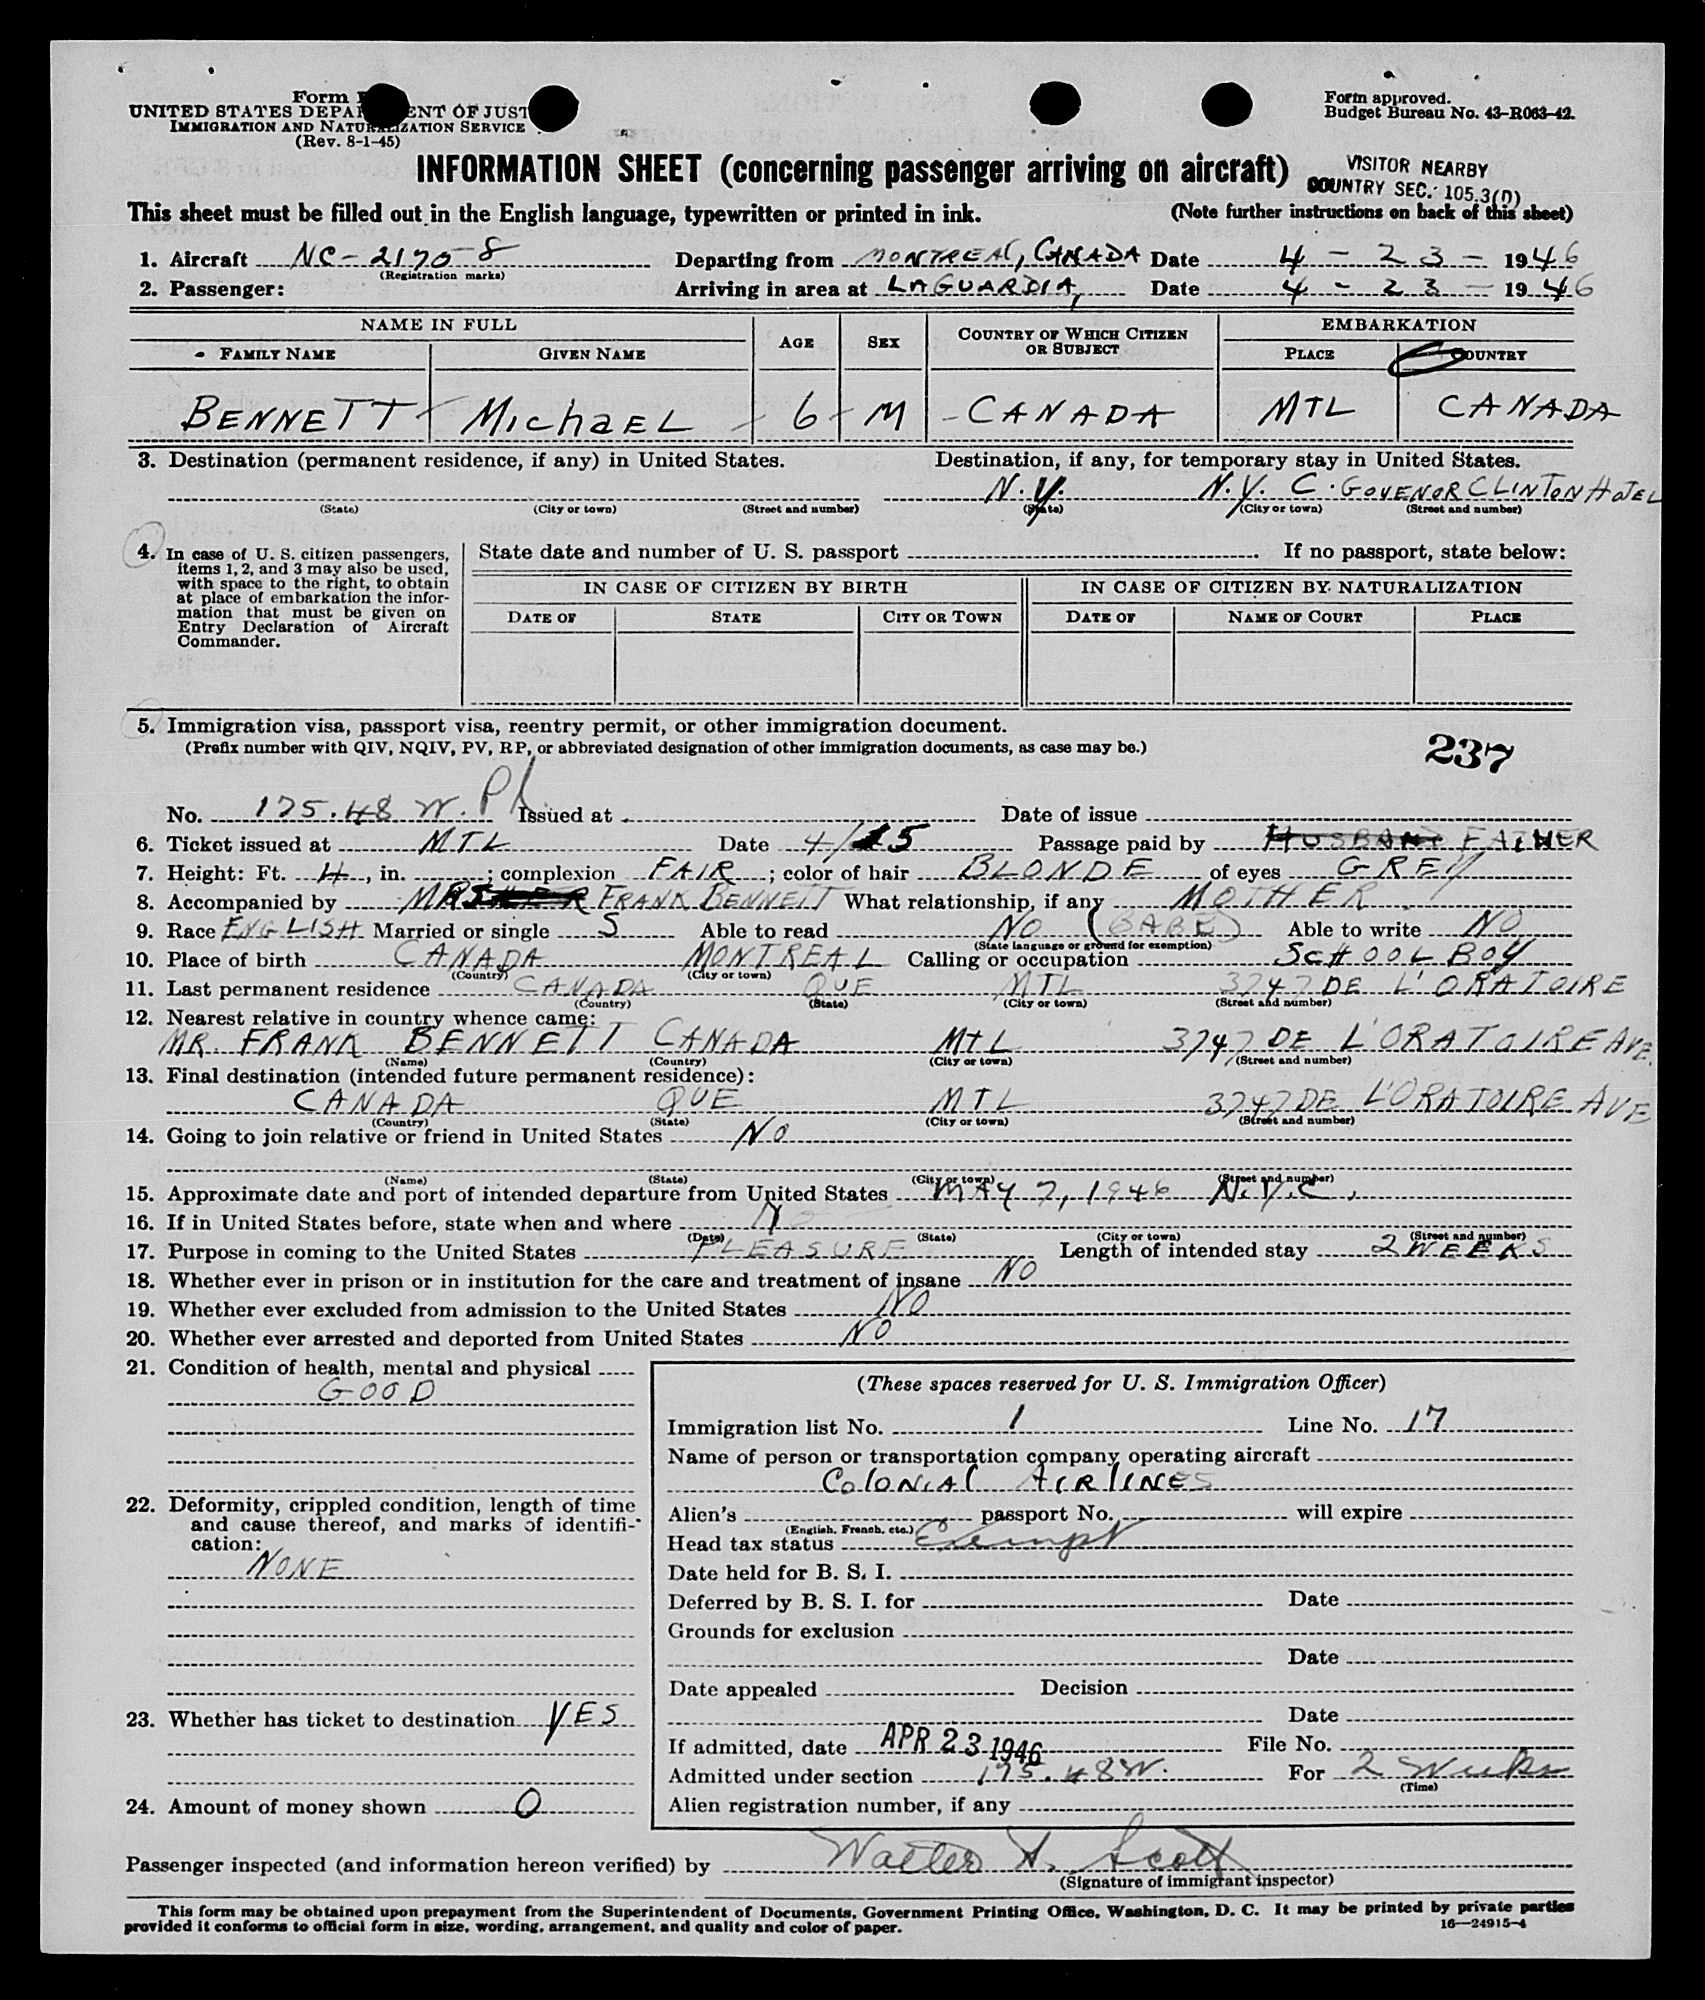 Form
UNITED STATES DEPA ENT OF JUST
IMMIGRATION AND NATURALIZATION SERVICE
(Rev. 8-1-45)
Form approved.
Budget Bureau No. 43-R063-42.
INFORMATION SHEET (concerning passenger arriving on aircraft)
VISITOR NEARBY
COUNTRY SEC. 105.3(D)
This sheet must be filled out in the English language, typewritten or printed in ink. (Note further instructions on back of this sheet)
1. Aircraft NC-21758 Departing from MONTREAL, CANADA Date 4-23-1946
(Registration marks)
2. Passenger: Arriving in area at LAGUARDIA, Date 4-23-1946
NAME IN FULL AGE SEX COUNTRY OF WHICH CITIZEN OR SUBJECT EMBARKATION
FAMILY NAME GIVEN NAME PLACE COUNTRY
BENNETT MIchaEL 6 M CANADA MTL CANADA
3. Destination (permanent residence, if any) in United States. Destination, if any, for temporary stay in United States.
N.Y. N.Y.C. GOVENOR CLINTON HOTEL
(State) (City or town) (Street and number) (State) (City or town) (Street and number)
4. In case of U. S. citizen passengers, items 1, 2, and 3 may also be used, with space to the right, to obtain at place of embarkation the information that must be given on Entry Declaration of Aircraft Commander.
State date and number of U. S. passport If no passport, state below:
IN CASE OF CITIZEN BY BIRTH IN CASE OF CITIZEN BY NATURALIZATION
DATE OF STATE CITY OR TOWN DATE OF NAME OF COURT PLACE
5. Immigration visa, passport visa, reentry permit, or other immigration document.
(Prefix number with QIV, NQIV, PV, RP, or abbreviated designation of other immigration documents, as case may be.)
237
No. 175.48 W. Issued at Date of issue
6. Ticket issued at MTL Date 4/15 Passage paid by HUSBAND FATHER
7. Height: Ft. 4, in. ; complexion FAIR ; color of hair BLONDE of eyes GREY
8. Accompanied by MRS FRANK BENNETT What relationship, if any MOTHER
9. Race ENGLISH Married or single S Able to read NO (BABE) Able to write NO
(State language or ground for exemption)
10. Place of birth CANADA MONTREAL Calling or occupation SCHOOL BOY
(Country) (City or town)
11. Last permanent residence CANADA QUE MTL 3747 DE L'ORATOIRE
(Country) (State) (City or town) (Street and number)
12. Nearest relative in country whence came:
MR. FRANK BENNETT CANADA MtL 3747 DE L'ORATOIRE AVE.
(Name) (Country) (City or town) (Street and number)
13. Final destination (intended future permanent residence):
CANADA QUE MTL 3747 DE L'ORATOIRE AVE
(Country) (State) (City or town) (Street and number)
14. Going to join relative or friend in United States NO
(Name) (State) (City or town) (Street and number)
15. Approximate date and port of intended departure from United States MAY 7, 1946 N.Y.C.
16. If in United States before, state when and where No
(Date) (State) (City or town) (Street and number)
17. Purpose in coming to the United States PLEASURE Length of intended stay 2 WEEKS
18. Whether ever in prison or in institution for the care and treatment of insane NO
19. Whether ever excluded from admission to the United States NO
20. Whether ever arrested and deported from United States NO
21. Condition of health, mental and physical
GOOD
22. Deformity, crippled condition, length of time and cause thereof, and marks of identification:
NONE
23. Whether has ticket to destination YES
24. Amount of money shown 0
(These spaces reserved for U. S. Immigration Officer)
Immigration list No. 1 Line No. 17
Name of person or transportation company operating aircraft
COLONIAL AIRLINES
Alien's passport No. will expire
(English, French, etc.)
Head tax status Exempt
Date held for B. S. I.
Deferred by B. S. I. for Date
Grounds for exclusion
Date
Date appealed Decision
Date
If admitted, date APR 23 1946 File No.
Admitted under section 175.48W. For 2 Weeks
(Time)
Alien registration number, if any
Passenger inspected (and information hereon verified) by Walter A. Scott
(Signature of immigrant inspector)
This form may be obtained upon prepayment from the Superintendent of Documents, Government Printing Office, Washington, D. C. It may be printed by private parties
provided it conforms to official form in size, wording, arrangement, and quality and color of paper.
16—24915-4